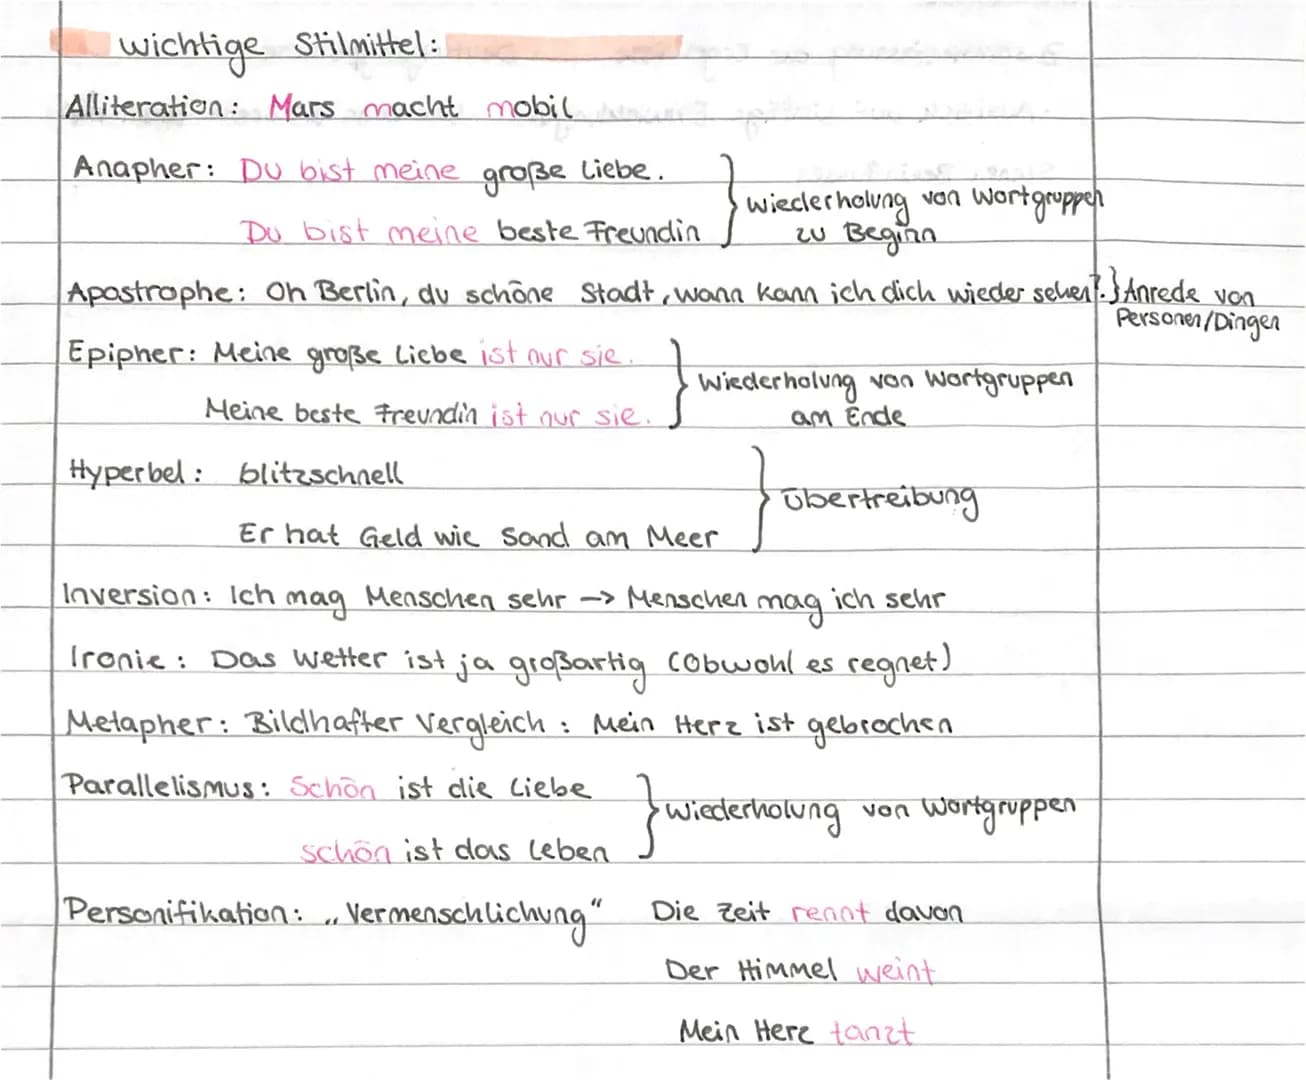 wichtige Stilmittel:
Alliteration: Mars macht mobil
Anapher: Du bist meine große Liebe.
Du bist meine beste Freundin
} Wiederholung von Wortgruppen
zu Beginn
Apostrophe: Oh Berlin, du schöne Stadt, wann kann ich dich wieder sehen?. } Anrede von
Personen/Dingen
Epipher: Meine große Liebe ist nur sie.
Meine beste Freundin ist nur sie.
} Wiederholung von Wortgruppen
am Ende
Hyperbel: blitzschnell
Er hat Geld wie Sand am Meer
} Übertreibung
Inversion: Ich mag Menschen sehr -> Menschen mag ich sehr
Ironie: Das Wetter ist ja großartig (obwohl es regnet)
Metapher: Bildhafter Vergleich: Mein Herz ist gebrochen
Parallelismus: Schön ist die Liebe
schön ist das Leben
} Wiederholung von Wortgruppen
Personifikation: „Vermenschlichung“ Die Zeit rennt davon
Der Himmel weint
Mein Herz tanzt